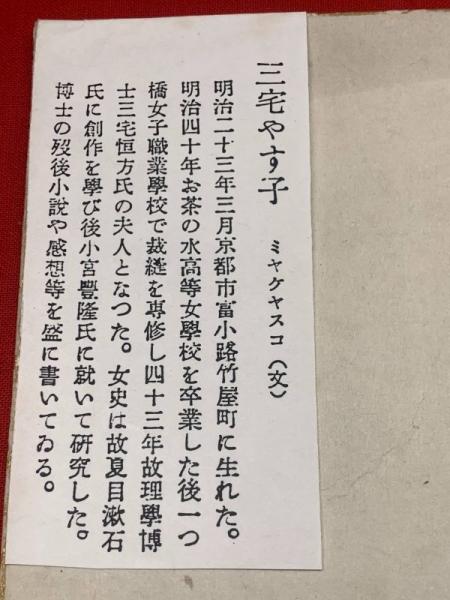 三宅やす子 ミヤケヤスコ(文)
明治二十三年三月京都市富小路竹屋町に生れた。
明治四十年お茶の水高等女學校を卒業した後一つ
橋女子職業學校で裁縫を専修し四十三年故理學博
士三宅恒方氏の夫人となつた。女史は故夏目漱石
氏に創作を學び後小宮豐隆氏に就いて研究した。
博士の歿後小說や感想等を盛に書いてゐる。